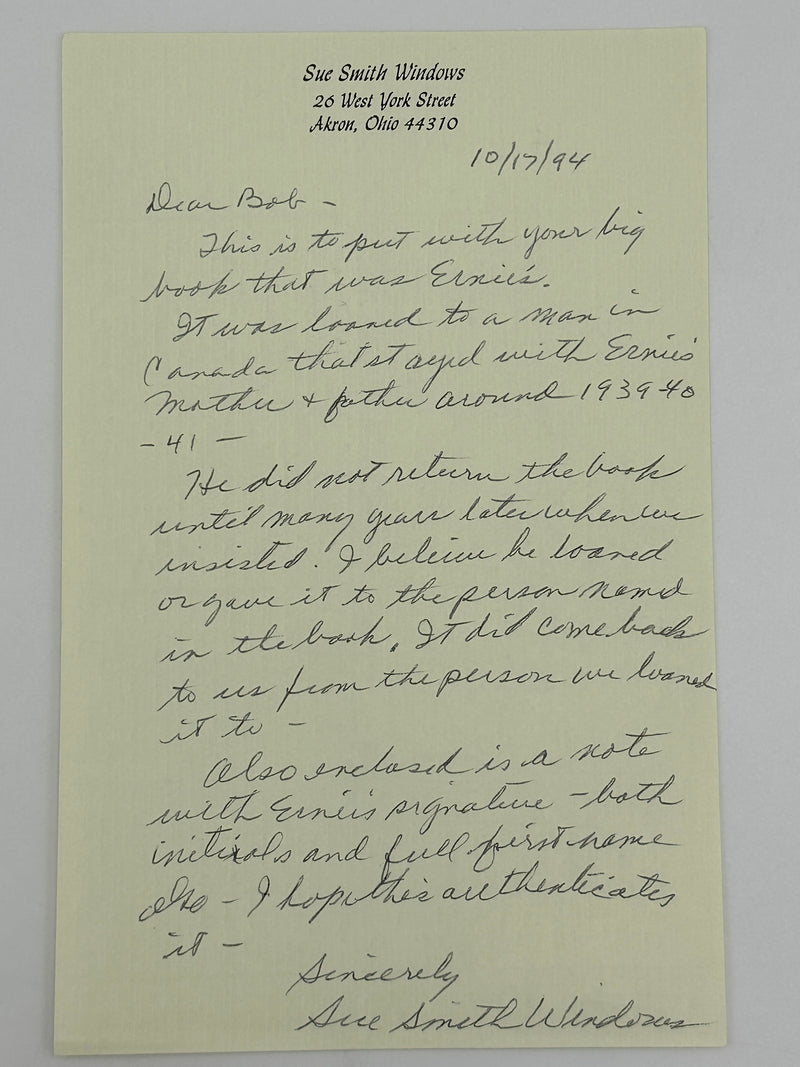 Sue Smith Windows
26 West York Street
Akron, Ohio 44310
10/17/94
Dear Bob -
This is to put with your big
book that was Ernie's.
It was loaned to a man in
Canada that stayed with Ernie's
Mother + father around 1939-40
- 41 -
He did not return the book
until many years later when we
insisted. I beleive he loaned
or gave it to the person named
in the book. It did come back
to us from the person we loaned
it to -
Also enclosed is a note
with Ernie's signature - both
initials and full first name
also - I hope this authenticates
it -
Sincerely
Sue Smith Windows